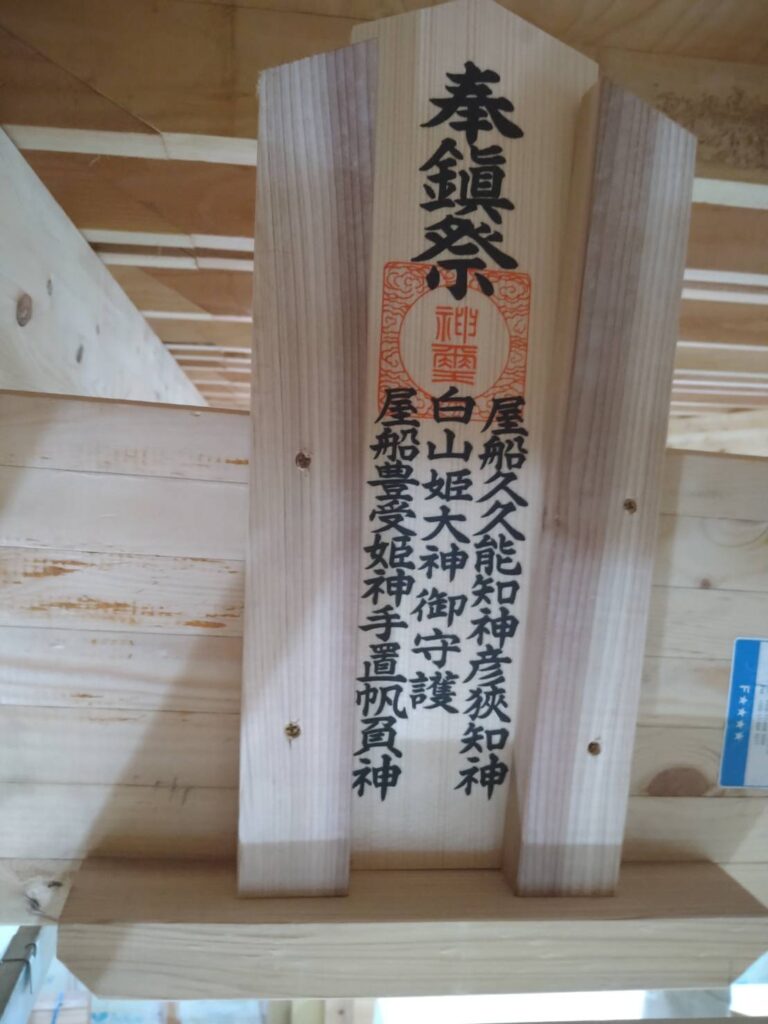 奉鎮祭
神璽
屋船久久能知神彦狹知神
白山姫大神御守護
屋船豊受姫神手置帆負神
F★★★★